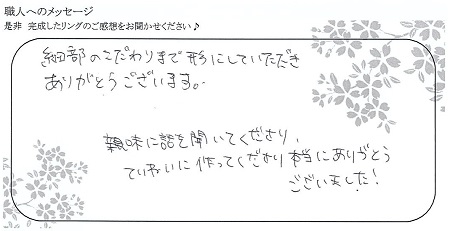 職人へのメッセージ
是非 完成したリングのご感想をお聞かせください♪
細部のこだわりまで形にしていただき
ありがとうございます。
親味に話を聞いてくださり、
ていねいに作ってくださり本当にありがとう
ございました!